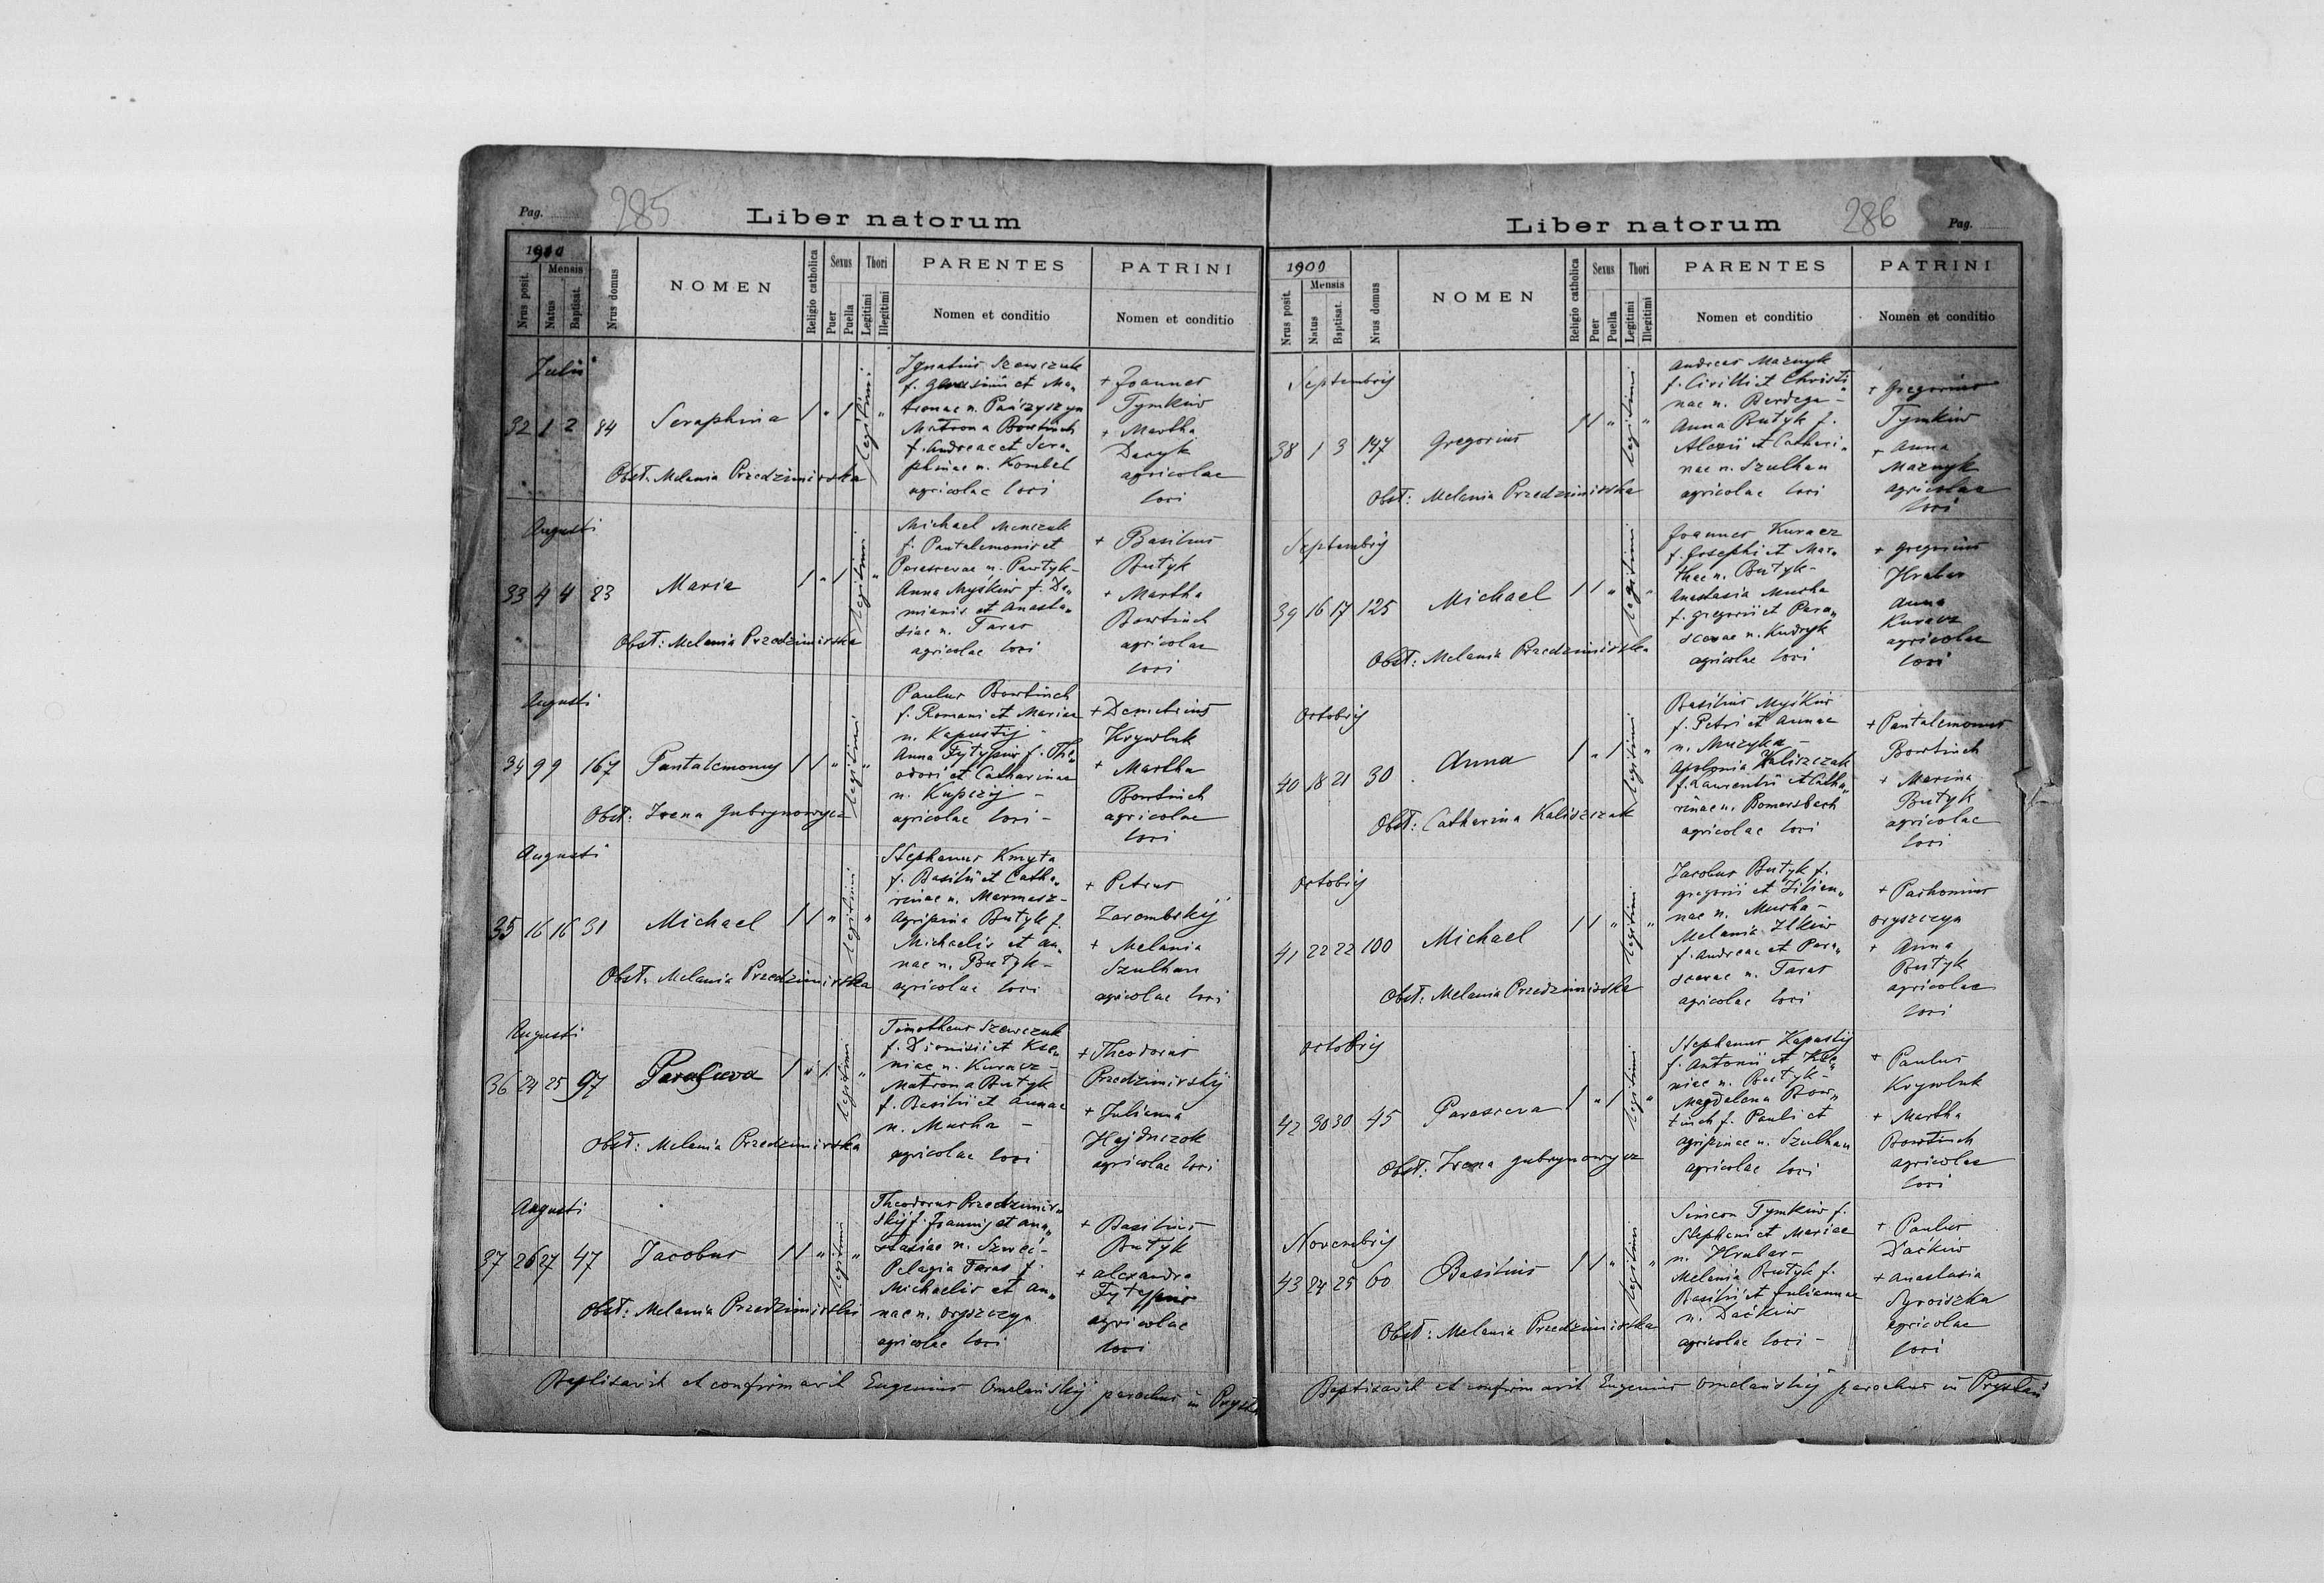 Pag.
285
Liber natorum
1900
Nrus posit.
Mensis
Natus
Baptisat.
Nrus domus
NOMEN
Religio catholica
Sexus
Puer
Puella
Thori
Legitimi
Illegitimi
PARENTES
Nomen et conditio
PATRINI
Nomen et conditio
Julii
32 1 2 84 Seraphina 1 " 1 legitimi "
Obst. Melania Przedzimirska
Ignatius Szewczuk
f. et Ma„
tronae n. Pańczyszyn
Matrona Bowtuch
f. Andreae et Sera„
phinae n. Kombel
agricolae loci
+ Joannes
Tymkiw
+ Martha
Daryk
agricolae
loci
Augusti
33 4 4 23 Maria 1 " 1 legitimi "
Obst: Melania Przedzimirska
Michael
f. Pantalemonis et
Parascevae n. Pawtyk-
Anna Myśkiw f. Da„
mianis et Anasta„
siae n. Taras
agricolae loci
+ Basilius
Butyk
+ Martha
Bowtuch
agricolae
loci
Augusti
34 9 9 167 Pantalemony 1 1 " legitimi "
Obst: Irena Gubrynowycz
Paulus Bowtuch
f. Romani et Mariae
n. Kapustij -
Anna f. The„
odori et Catharinae
n. Kupczij -
agricolae loci -
+ Demetrius
Krywluk
+ Martha
Bowtuch
agricolae
loci
Augusti
35 16 16 31 Michael 1 1 " legitimi "
Obst. Melania Przedzimirska
Stephanus Kmyta
f. Basilii et Catha„
rinae n. Marmasz-
Agripina Butyk f.
Michaelis et An„
nae n. Butyk -
agricolae loci
+ Petrus
Zarembskij
+ Melania
Szulhan
agricolae loci
Augusti
36 24 25 97 Parasceva 1 " 1 legitimi "
Obst: Melania Przedzimirska
Timotheus Szewczuk
f. Dionisii et Kse„
niae n. Kuracz -
Matrona Butyk
f. Basilii et Annae
n. Mucha -
agricolae loci
+ Theodorus
Przedzimirskij
+ Julianna
Hajduczok
agricolae loci
Augusti
37 26 27 47 Jacobus 1 1 " legitimi "
Obst: Melania Przedzimirska
Theodorus Przedzimir„
skij f. Joannis et Ana„
stasiae n. Szweć -
Pelagia Taras f.
Michaelis et An„
nae n. Oryszczyn
agricolae loci
+ Basilius
Butyk
+ Alexandra
agricolae
loci
Baptisavit et confirmavit Eugenius Omelańskij parochus in
Liber natorum
286
Pag.
1900
Nrus posit.
Mensis
Natus
Baptisat.
Nrus domus
NOMEN
Religio catholica
Sexus
Puer
Puella
Thori
Legitimi
Illegitimi
PARENTES
Nomen et conditio
PATRINI
Nomen et conditio
Septembris
38 1 3 147 Gregorius 1 1 " legitimi "
Obst: Melania Przedzimirska
Andreas Maznyk
f. Cirilli et Christi„
nae n. Berdega -
Anna Butyk f.
Alexii et Cathari„
nae n. Szulhan
agricolae loci
+ Gregorius
Tymkiw
+ Anna
Maznyk
agricolae
loci
Septembris
39 16 17 125 Michael 1 1 " legitimi "
Obst: Melania Przedzimirska
Joannes Kuracz
f. Josephi et Mar„
thae n. Butyk -
Anastasia Mucha
f. Gregorii et Para„
scevae n. Kudryk
agricolae loci
+ Gregorius
Hrabar
Anna
Kuracz
agricolae
loci
Octobris
40 18 21 30 Anna 1 " 1 legitimi "
Obst: Catharina Kaliszczak
Basilius Myśkiw
f. Petri et Annae
n. Muzyka -
Apolonia Kaliszczak
f. Laurentii et Catha„
rinae n. Romersbach
agricolae loci
+ Pantalemonus
Bowtuch
+ Marina
Butyk
agricolae
loci
Octobris
41 22 22 100 Michael 1 1 " legitimi "
Obst: Melania Przedzimirska
Jacobus Butyk f.
Gregorii et Julian„
nae n. Mucha -
Melania Ilkiw
f. Andreae et Para„
scevae n. Taras
agricolae loci
+ Pachomius
Oryszczyn
+ Anna
Butyk
agricolae
loci
Octobris
42 30 30 45 Parasceva 1 " 1 legitimi "
Obst: Irena Gubrynowycz
Stephanus Kapustij
f. Antonii et Kse„
niae n. Butyk -
Magdalena Bow„
tuch f. Pauli et
Agripinae n. Szulhan
agricolae loci
+ Paulus
Krywluk
+ Martha
Bowtuch
agricolae
loci
Novembris
43 24 25 60 Basilius 1 1 " legitimi "
Obst: Melania Przedzimirska
Simeon Tymkiw f.
Stephani et Mariae
n. Hrabar -
Melania Butyk f.
Basilii et Juliannae
n. Daćkiw
agricolae loci -
+ Paulus
Daćkiw
+ Anastasia
Syroiszka
agricolae
loci
Baptisavit et confirmavit Eugenius Omelańskij parochus in Prystań